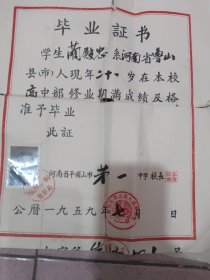 毕业证书
学生蔺殿忠系河南省鲁山
县(市)人现年二十一岁在本校
高中部修业期满成绩及格
准予毕业
此证
河南省平顶山市第一中学校长
公历一九五九年七月 日